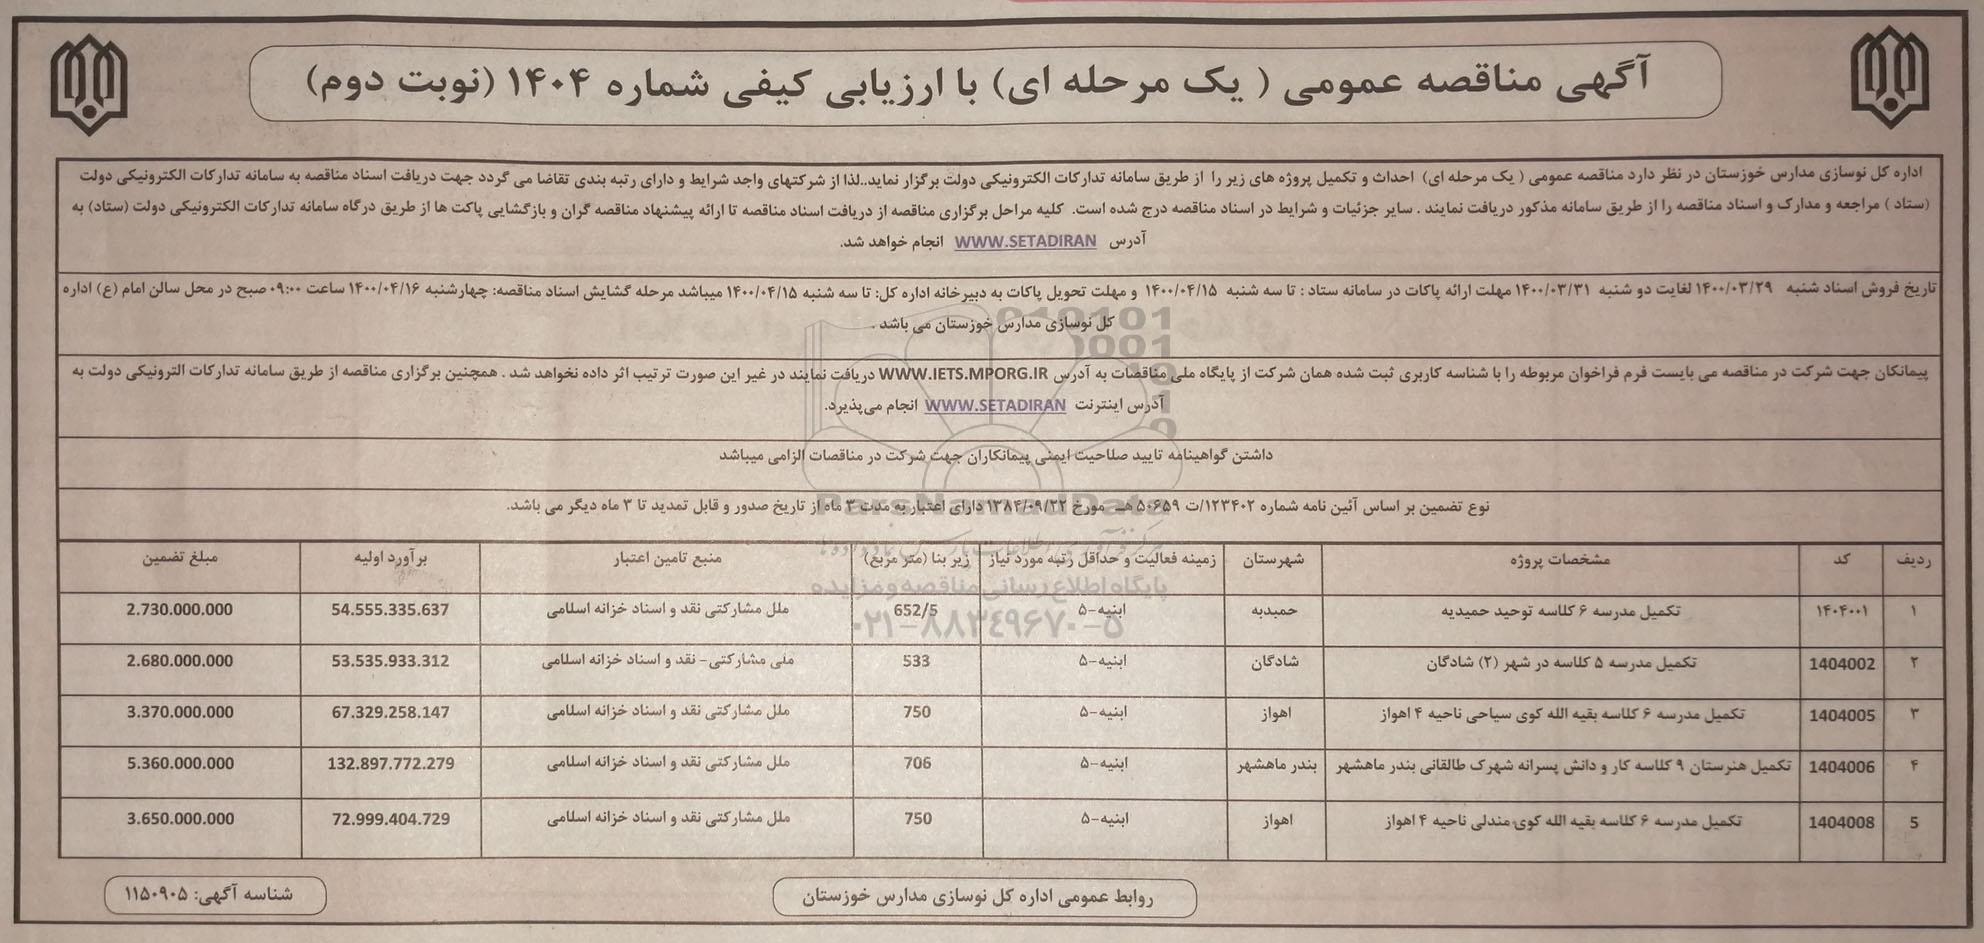 آگهی مناقصه عمومی ( یک مرحله ای) با ارزیابی کیفی شماره ۱۴۰۴ (نوبت دوم)
اداره کل نوسازی مدارس خوزستان در نظر دارد مناقصه عمومی ( یک مرحله ای) احداث و تکمیل پروژه های زیر را از طریق سامانه تدارکات الکترونیکی دولت برگزار نماید..لذا از شرکتهای واجد شرایط و دارای رتبه بندی تقاضا می گردد جهت دریافت اسناد مناقصه به سامانه تدارکات الکترونیکی دولت
(ستاد ) مراجعه و مدارک و اسناد مناقصه را از طریق سامانه مذکور دریافت نمایند . سایر جزئیات و شرایط در اسناد مناقصه درج شده است. کلیه مراحل برگزاری مناقصه از دریافت اسناد مناقصه تا ارائه پیشنهاد مناقصه گران و بازگشایی پاکت ها از طریق درگاه سامانه تدارکات الکترونیکی دولت (ستاد) به
آدرس WWW.SETADIRAN انجام خواهد شد.
تاریخ فروش اسناد شنبه ۱۴۰۰/۰۳/۲۹ لغایت دو شنبه ۱۴۰۰/۰۳/۳۱ مهلت ارائه پاکات در سامانه ستاد : تا سه شنبه ۱۴۰۰/۰۴/۱۵ و مهلت تحویل پاکات به دبیرخانه اداره کل: تا سه شنبه ۱۴۰۰/۰۴/۱۵ میباشد مرحله گشایش اسناد مناقصه: چهارشنبه ۱۴۰۰/۰۴/۱۶ ساعت ۰۹:۰۰ صبح در محل سالن امام (ع) اداره
کل نوسازی مدارس خوزستان می باشد .
پیمانکان جهت شرکت در مناقصه می بایست فرم فراخوان مربوطه را با شناسه کاربری ثبت شده همان شرکت از پایگاه ملی مناقصات به آدرس WWW.IETS.MPORG.IR دریافت نمایند در غیر این صورت ترتیب اثر داده نخواهد شد . همچنین برگزاری مناقصه از طریق سامانه تدارکات التروﻧﻴﻜﻲ دولت به
آدرس اینترنت WWW.SETADIRAN انجام می‌پذیرد.
داشتن گواهینامه تایید صلاحیت ایمنی پیمانکاران جهت شرکت در مناقصات الزامی میباشد
نوع تضمین بر اساس آئین نامه شماره ۱۲۳۴۰۲/ت ۵۰۶۵۹ هـ مورخ ۱۳۸۴/۰۹/۲۲ دارای اعتبار به مدت ۳ ماه از تاریخ صدور و قابل تمدید تا ۳ ماه دیگر می باشد.
ردیف کد مشخصات پروژه شهرستان زمینه فعالیت و حداقل رتبه مورد نیاز زیر بنا (متر مربع) منبع تامین اعتبار برآورد اولیه مبلغ تضمین
۱ ۱۴۰۴۰۰۱ تکمیل مدرسه ۶ کلاسه توحید حمیدیه حمیدیه ابنیه-۵ 652/5 ملل مشارکتی نقد و اسناد خزانه اسلامی 54.555.335.637 2.730.000.000
۲ 1404002 تکمیل مدرسه ۵ کلاسه در شهر (۲) شادگان شادگان ابنیه-۵ 533 ملی مشارکتی- نقد و اسناد خزانه اسلامی 53.535.933.312 2.680.000.000
۳ 1404005 تکمیل مدرسه ۶ کلاسه بقیه الله کوی سیاحی ناحیه ۴ اهواز اهواز ابنیه-۵ 750 ملل مشارکتی نقد و اسناد خزانه اسلامی 67.329.258.147 3.370.000.000
۴ 1404006 تکمیل هنرستان ۹ کلاسه کار و دانش پسرانه شهرک طالقانی بندر ماهشهر بندر ماهشهر ابنیه-۵ 706 ملل مشارکتی نقد و اسناد خزانه اسلامی 132.897.772.279 5.360.000.000
5 1404008 تکمیل مدرسه ۶ کلاسه بقیه الله کوی مندلی ناحیه ۴ اهواز اهواز ابنیه-۵ 750 ملل مشارکتی نقد و اسناد خزانه اسلامی 72.999.404.729 3.650.000.000
ParsNamadData
پایگاه اطلاع رسانی مناقصه و مزایده
۰۲۱-۸۸۳۴۹۶۷۰-۵
روابط عمومی اداره کل نوسازی مدارس خوزستان
شناسه آگهی: ۱۱۵۰۹۰۵